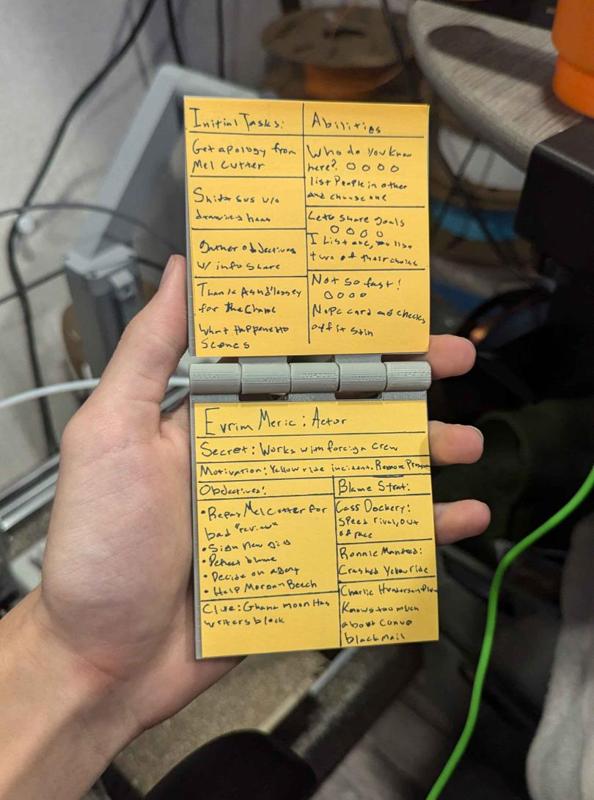 Initial Tasks:
Get apology from
Mel Cutter
sus w/o
Gather objectives
w/ info share
Thank
for the Champ
What Happened to
Scenes
Abilities
Who do you know
here? O O O O
list People in other
and choose one
Lets share goals
O O O O
I List one, list
two of their choice
Not so fast!
O O O O
Nope card and checks
off it
Evrim Meric: Actor
Secret: Works with foreign Crew
Motivation: Yellow ride incident. Remove
Objectives:
• Repay Mel Cutter for
bad "review"
• Sign New
• Deflect blame
• Decide on agent
• Help Morgan Beech
Clue: Ghana moon Has
writers block
Blame Strat:
Cass Dockery:
Speed rival, out
of race
Ronnie
Crashed Yellow ride
Charlie
Knows too much
about Convo
blackmail